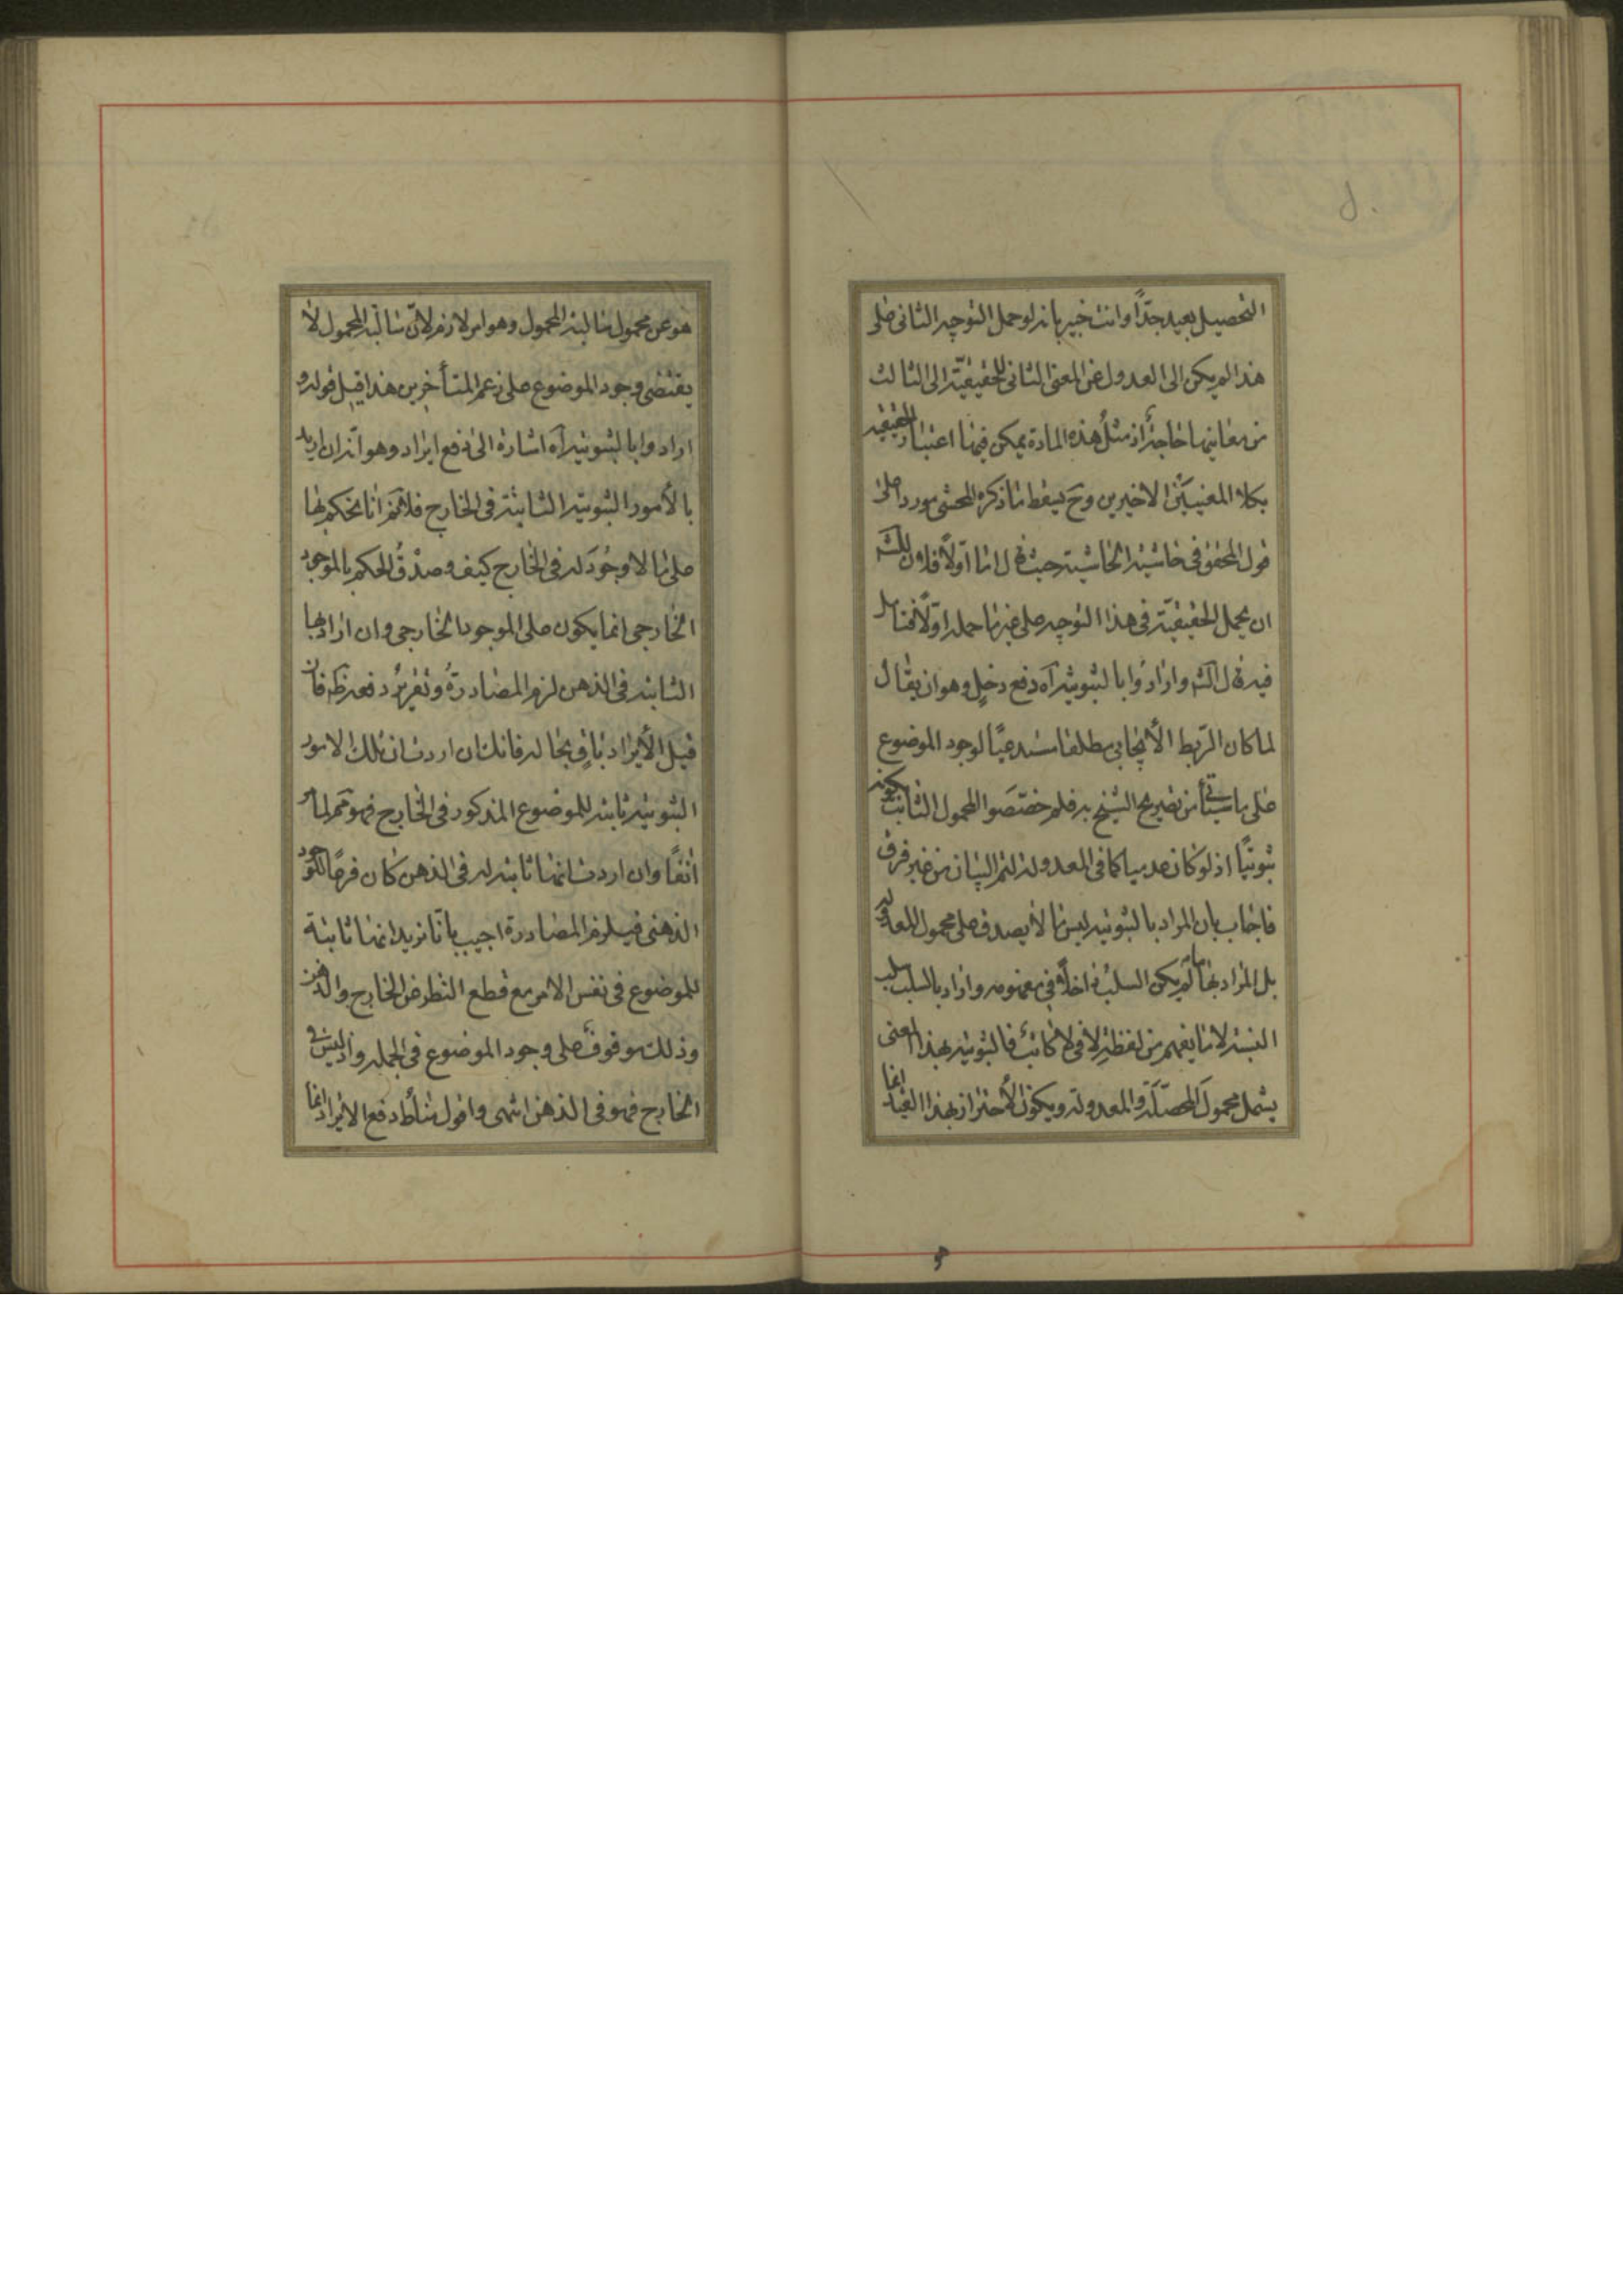 التحصيل بعيد جدّاً وانت خبير بانه لو حمل التوجيه الثانى على
هذا لم يكن الى العدول عن المعنى الثانى للحقيقيّة الى الثالث
من معانيها حاجة اذ مثلُ هذه المادة يمكن فيها اعتبار الحقيقيه
بكلا المعنيَيْن الاخيرين وح يسقط ما ذكره المحشى موردا على
قول المحقق فى حاشية الحاشية حيث قال اما اوّلاً فلان
ان يحمل الحقيقيّة فى هذا التوجيه على غير ما حمله اوّلاً فتامل
فيه قال الشه وارادُوا بالثبوتية آه دفع دخلٍ وهو ان يقال
لما كان الرّبط الأيجابى مطلقا مستدعيًا لوجود الموضوع
على ما سيأتى من تصريح الشيخ به فلم خصّصوا المحمول الثابت بكونه
ثبوتيًا اذ لو كان عدميا كما فى المعدولة لتم البيان من غير فرق
فاجاب بان المراد بالثبوتية ليس ما لا يصدق على محمول المعدوله
بل المراد بها ما لم يكن السلبُ داخلاً فى مفهومه واراد بالسلب سلب
النسبة لا ما يفهم من لفظة لا فى لا كاتب فالثبوتية بهذا المعنى
يشمل محمولَ المحصّلَة والمعدولة ويكون الأحتراز بهذا القيد انما
هو عن محمول سالبة المحمول وهو امر لازم لانّ سالبة المحمول لا
يقتضى وجود الموضوع على زعم المتأخرين هذا قيل قوله و
ارادوا بالثبوتية آه اشارة الى دفع ايراد وهو انه ان اريد
بالأمور الثبوتية الثابتة فى الخارج فلانم انا نحكم بها
على ما لا وجُودَ له فى الخارج كيف وصدْقُ الحكم بالموجود
الخارجى انما يكون على الموجود الخارجى وان اراد بها
الثابتة فى الذهن لزم المصادرةُ وتقريرُ دفعه ظه فان
قيل الأيراد باقٍ بحاله فانك ان اردت ان تلك الامور
الثبوتية ثابتة للموضوع المذكور فى الخارج فهو مم لما مر
انفًا وان اردت انها ثابتة له فى الذهن كان فرعًا للوجود
الذهنى فيلزم المصادرة اجيب بانّا نريد انها ثابتة
للموضوع فى نفس الامر مع قطع النظر عن الخارج والذهن
وذلك موقوف على وجود الموضوع فى الجمله واذ ليس فى
الخارج فهو فى الذهن انتهى واقول مناط دفع الايراد انما